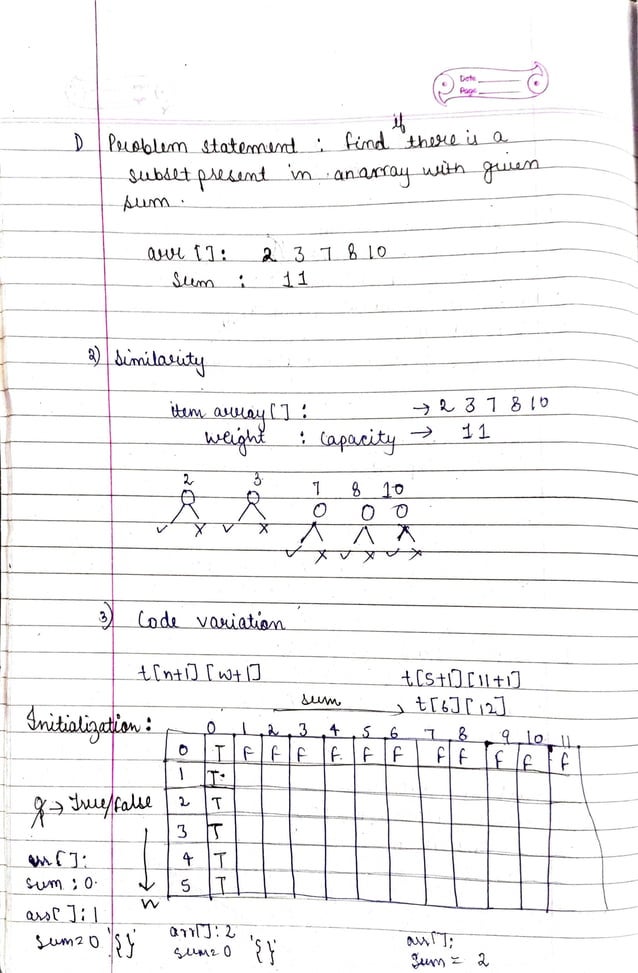 Date
Page
1) Problem statement : find if there is a
subset present in an array with given
sum.
arr []: 2 3 7 8 10
Sum : 11
2) Similarity
item array [] : → 2 3 7 8 10
weight : capacity → 11
2 3 7 8 10
✓ x ✓ x ✓ x ✓ x ✓ x
3) Code variation
t[n+1] [w+1] t[5+1][11+1]
sum → t[6][12]
Initialization :
0 1 2 3 4 5 6 7 8 9 10 11
0 T F F F F F F F F F F F
1 T
→ True/false 2 T
3 T
arr[]: 4 T
sum : 0. 5 T
n
arr[]: 1
sum=0 '{}'
arr[]: 2
sum=0 '{}'
arr[];
sum = 2